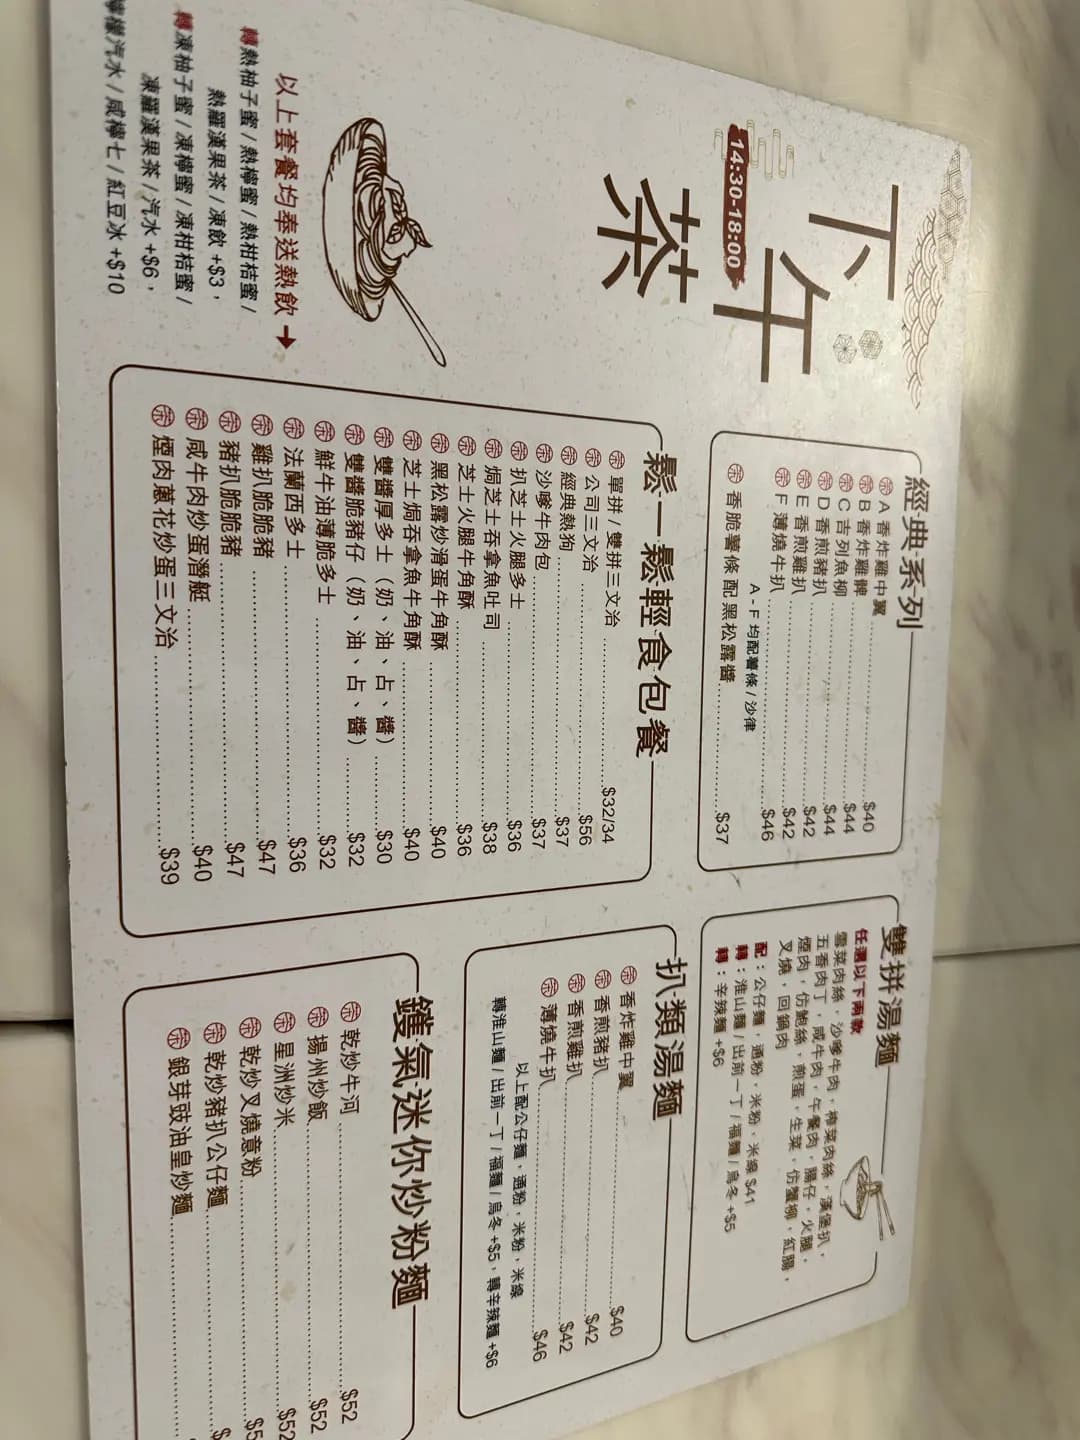 下午茶
14:30-18:00
以上套餐均奉送熱飲➜
轉熱柚子蜜/熱檸蜜/熱柑桔蜜/
熱羅漢果茶/凍飲 +$3，
轉凍柚子蜜/凍檸蜜/凍柑桔蜜/
凍羅漢果茶/汽水 +$6，
檸檬汽水/咸檸七/紅豆冰 +$10
經典系列
茶 A 香炸雞中翼 $40
茶 B 香炸雞髀 $44
茶 C 吉列魚柳 $44
茶 D 香煎豬扒 $42
茶 E 香煎雞扒 $42
茶 F 薄燒牛扒 $46
A - F 均配薯條/沙律
茶 香脆薯條配黑松露醬 $37
鬆一鬆輕食包餐
茶 單拼/雙拼三文治 $32/34
茶 公司三文治 $56
茶 經典熱狗 $37
茶 沙嗲牛肉包 $37
茶 扒芝士火腿多士 $36
茶 焗芝士吞拿魚吐司 $38
茶 芝士火腿牛角酥 $36
茶 黑松露炒滑蛋牛角酥 $40
茶 芝士焗吞拿魚牛角酥 $40
茶 雙醬厚多士（奶、油、占、醬） $30
茶 雙醬脆豬仔（奶、油、占、醬） $32
茶 鮮牛油薄脆多士 $32
茶 法蘭西多士 $36
茶 雞扒脆脆豬 $47
茶 豬扒脆脆豬 $47
茶 咸牛肉炒蛋潛艇 $40
茶 煙肉蔥花炒蛋三文治 $39
雙拼湯麵
任選以下兩款
雪菜肉絲，沙嗲牛肉，榨菜肉絲，漢堡扒，
五香肉丁，咸牛肉，午餐肉，腸仔，火腿，
煙肉，仿鮑絲，煎蛋，生菜，仿蟹柳，紅腸，
叉燒，回鍋肉
配：公仔麵，通粉，米粉，米線 $41
轉：淮山麵/出前一丁/福麵/烏冬 +$5
轉：辛辣麵 +$6
扒類湯麵
茶 香炸雞中翼 $40
茶 香煎豬扒 $42
茶 香煎雞扒 $42
茶 薄燒牛扒 $46
以上配公仔麵，通粉，米粉，米線
轉淮山麵/出前一丁/福麵/烏冬 +$5，轉辛辣麵 +$6
鑊氣迷你炒粉麵
茶 乾炒牛河 $52
茶 揚州炒飯 $52
茶 星洲炒米 $52
茶 乾炒叉燒意粉 $5
茶 乾炒豬扒公仔麵 $
茶 銀芽豉油皇炒麵